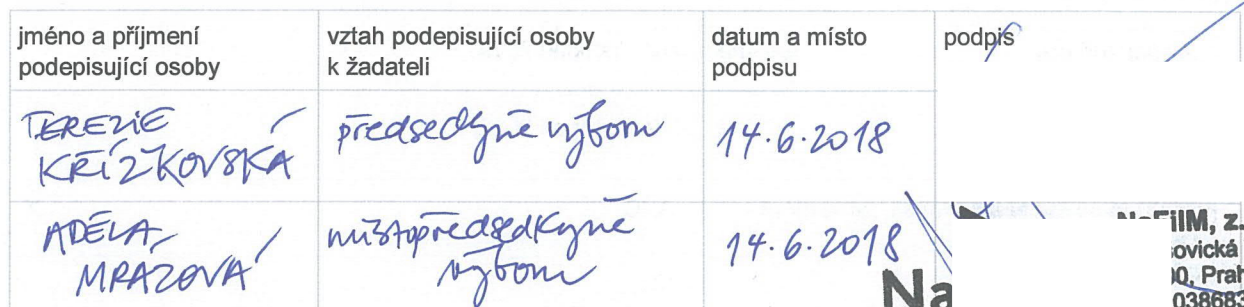 jméno a příjmení
podepisující osoby
vztah podepisující osoby
k žadateli
datum a místo
podpisu
podpis
TEREZIE
KŘÍŽKOVSKÁ
předsedkyně výboru
14.6.2018
ADÉLA
MRÁZOVÁ
místopředsedkyně
výboru
14.6.2018
Na
NaFilM, z.
ovická
00, Prah
038683